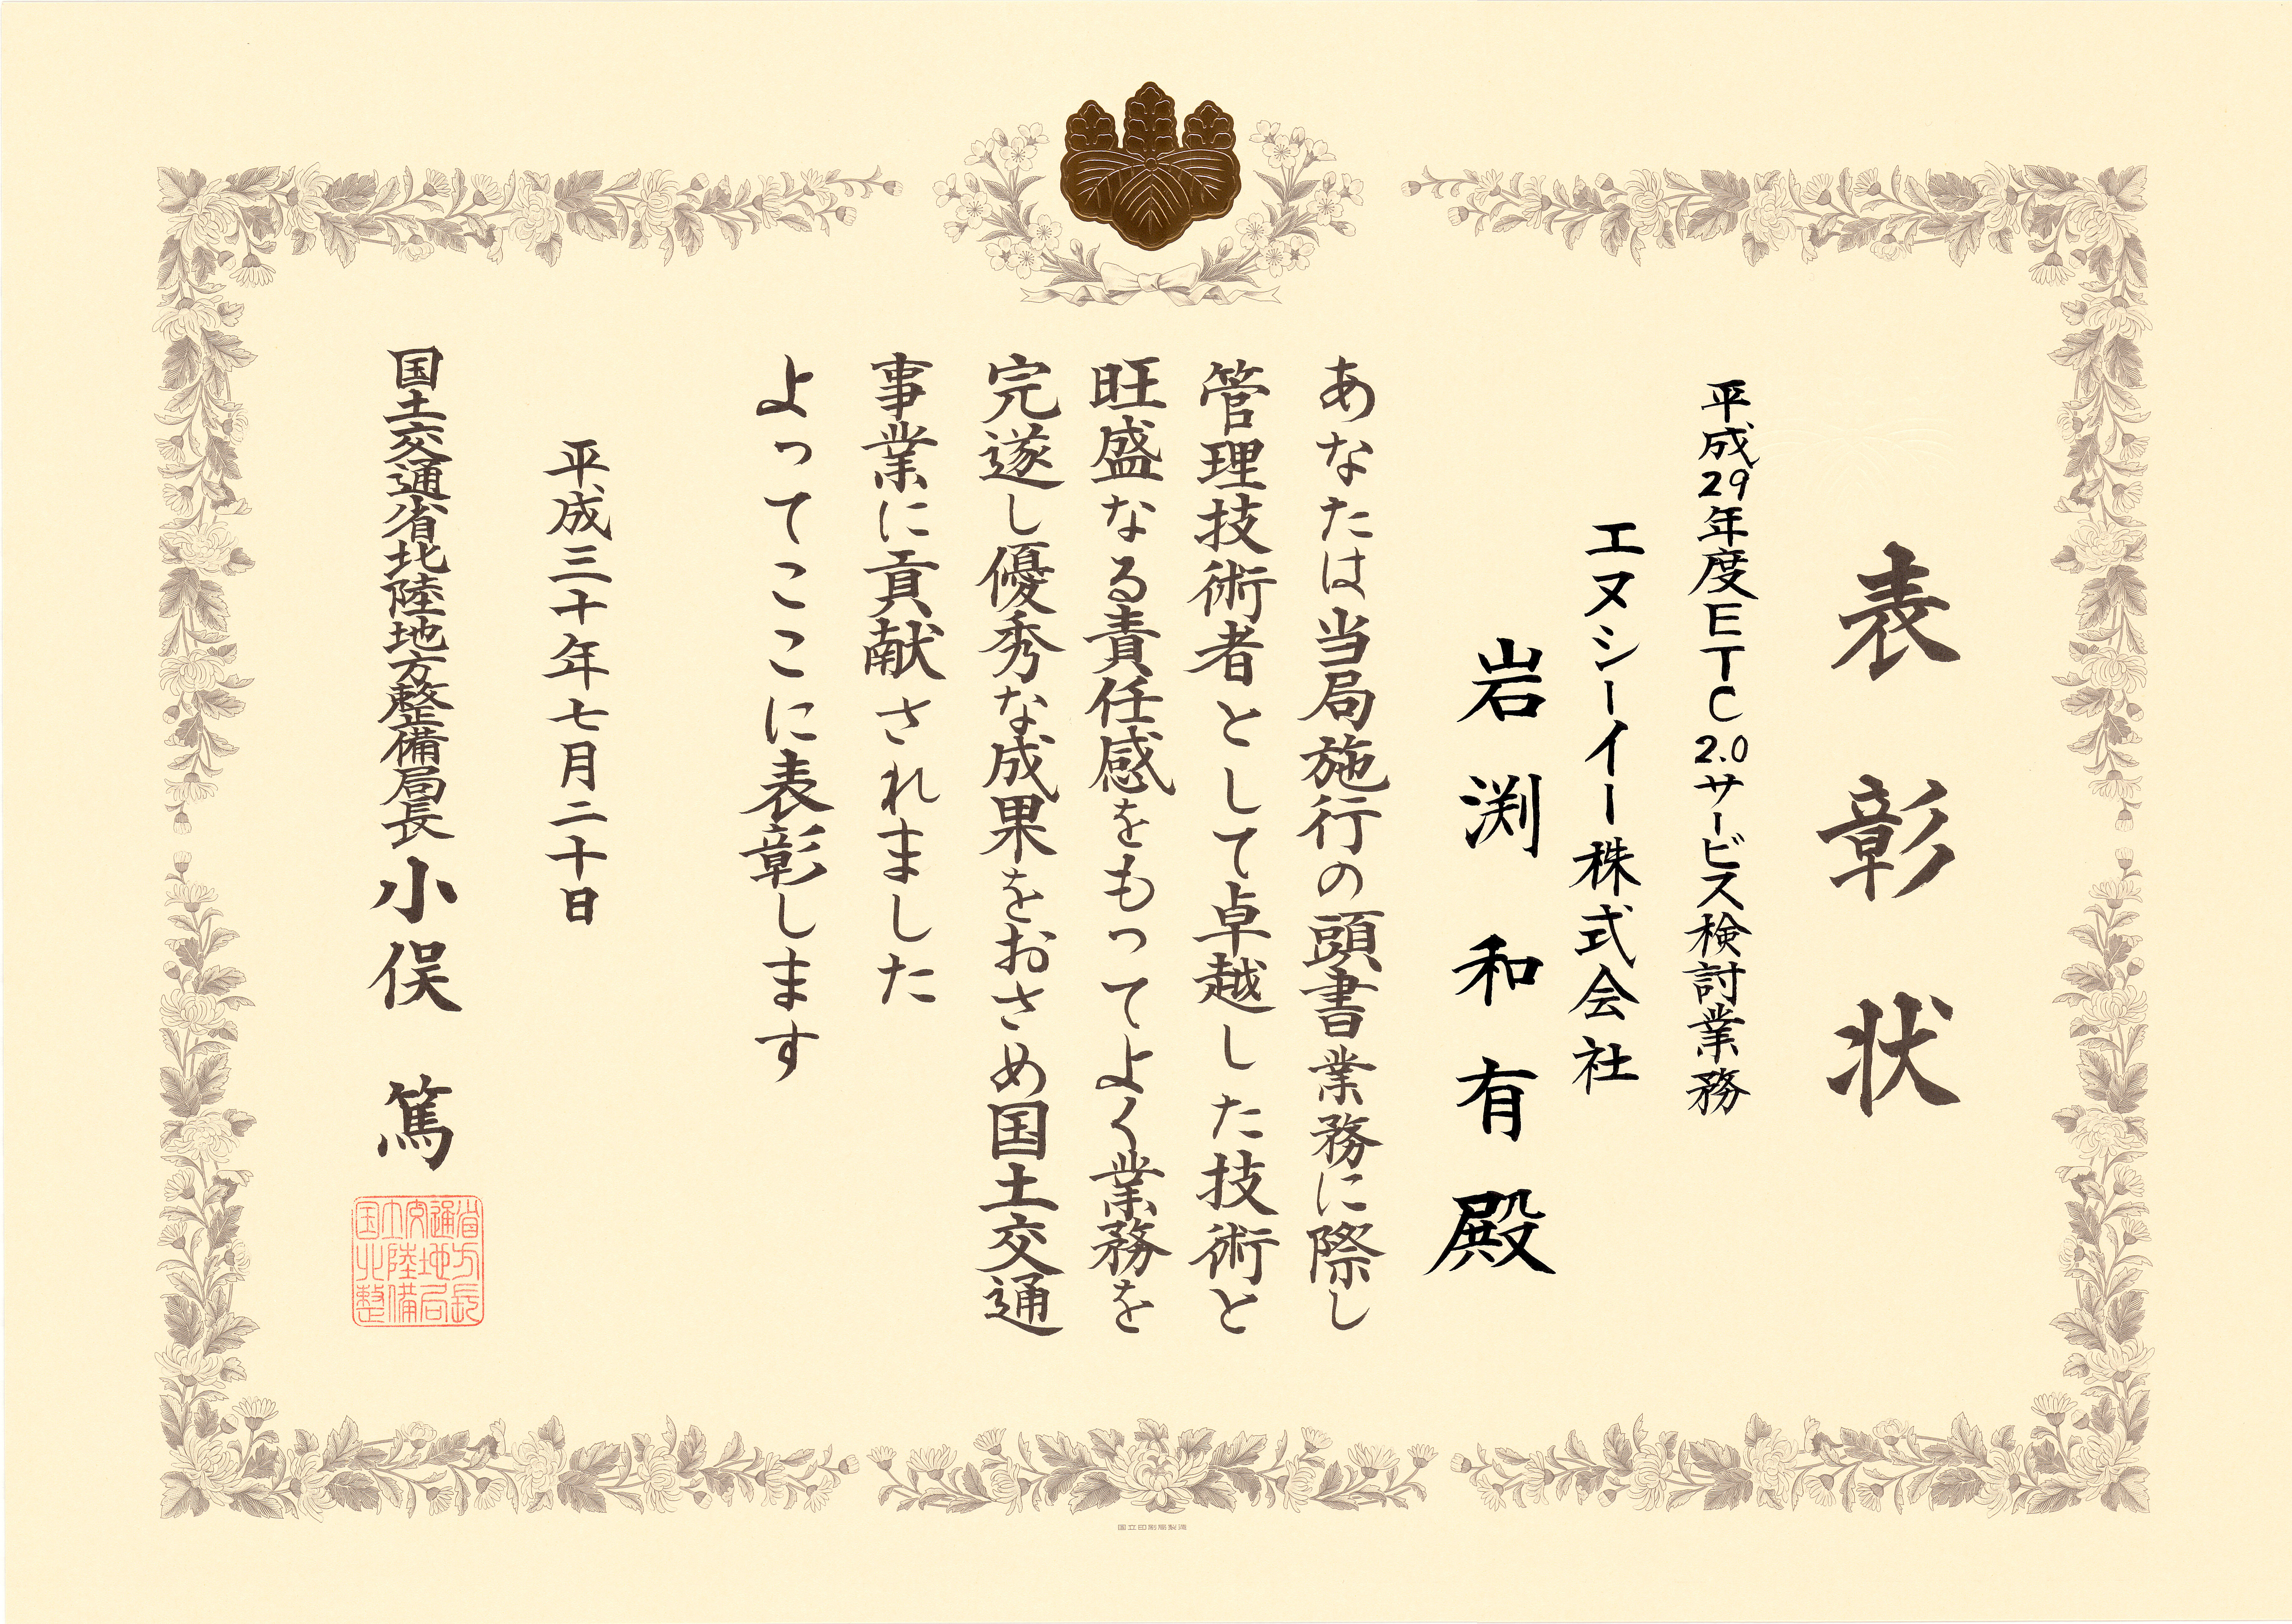 表彰状
平成29年度ETC2.0サービス検討業務
エヌシーイー株式会社
岩渕和有殿
あなたは当局施行の頭書業務に際し
管理技術者として卓越した技術と
旺盛なる責任感をもってよく業務を
完遂し優秀な成果をおさめ国土交通
事業に貢献されました
よってここに表彰します
平成三十年七月二十日
国土交通省北陸地方整備局長 小俣 篤
国土交通省
北陸地方
整備局長
国立印刷局製造